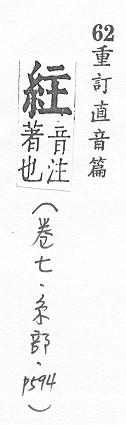 62重訂直音篇
紸音注
著也
(卷七·糸部·p594)